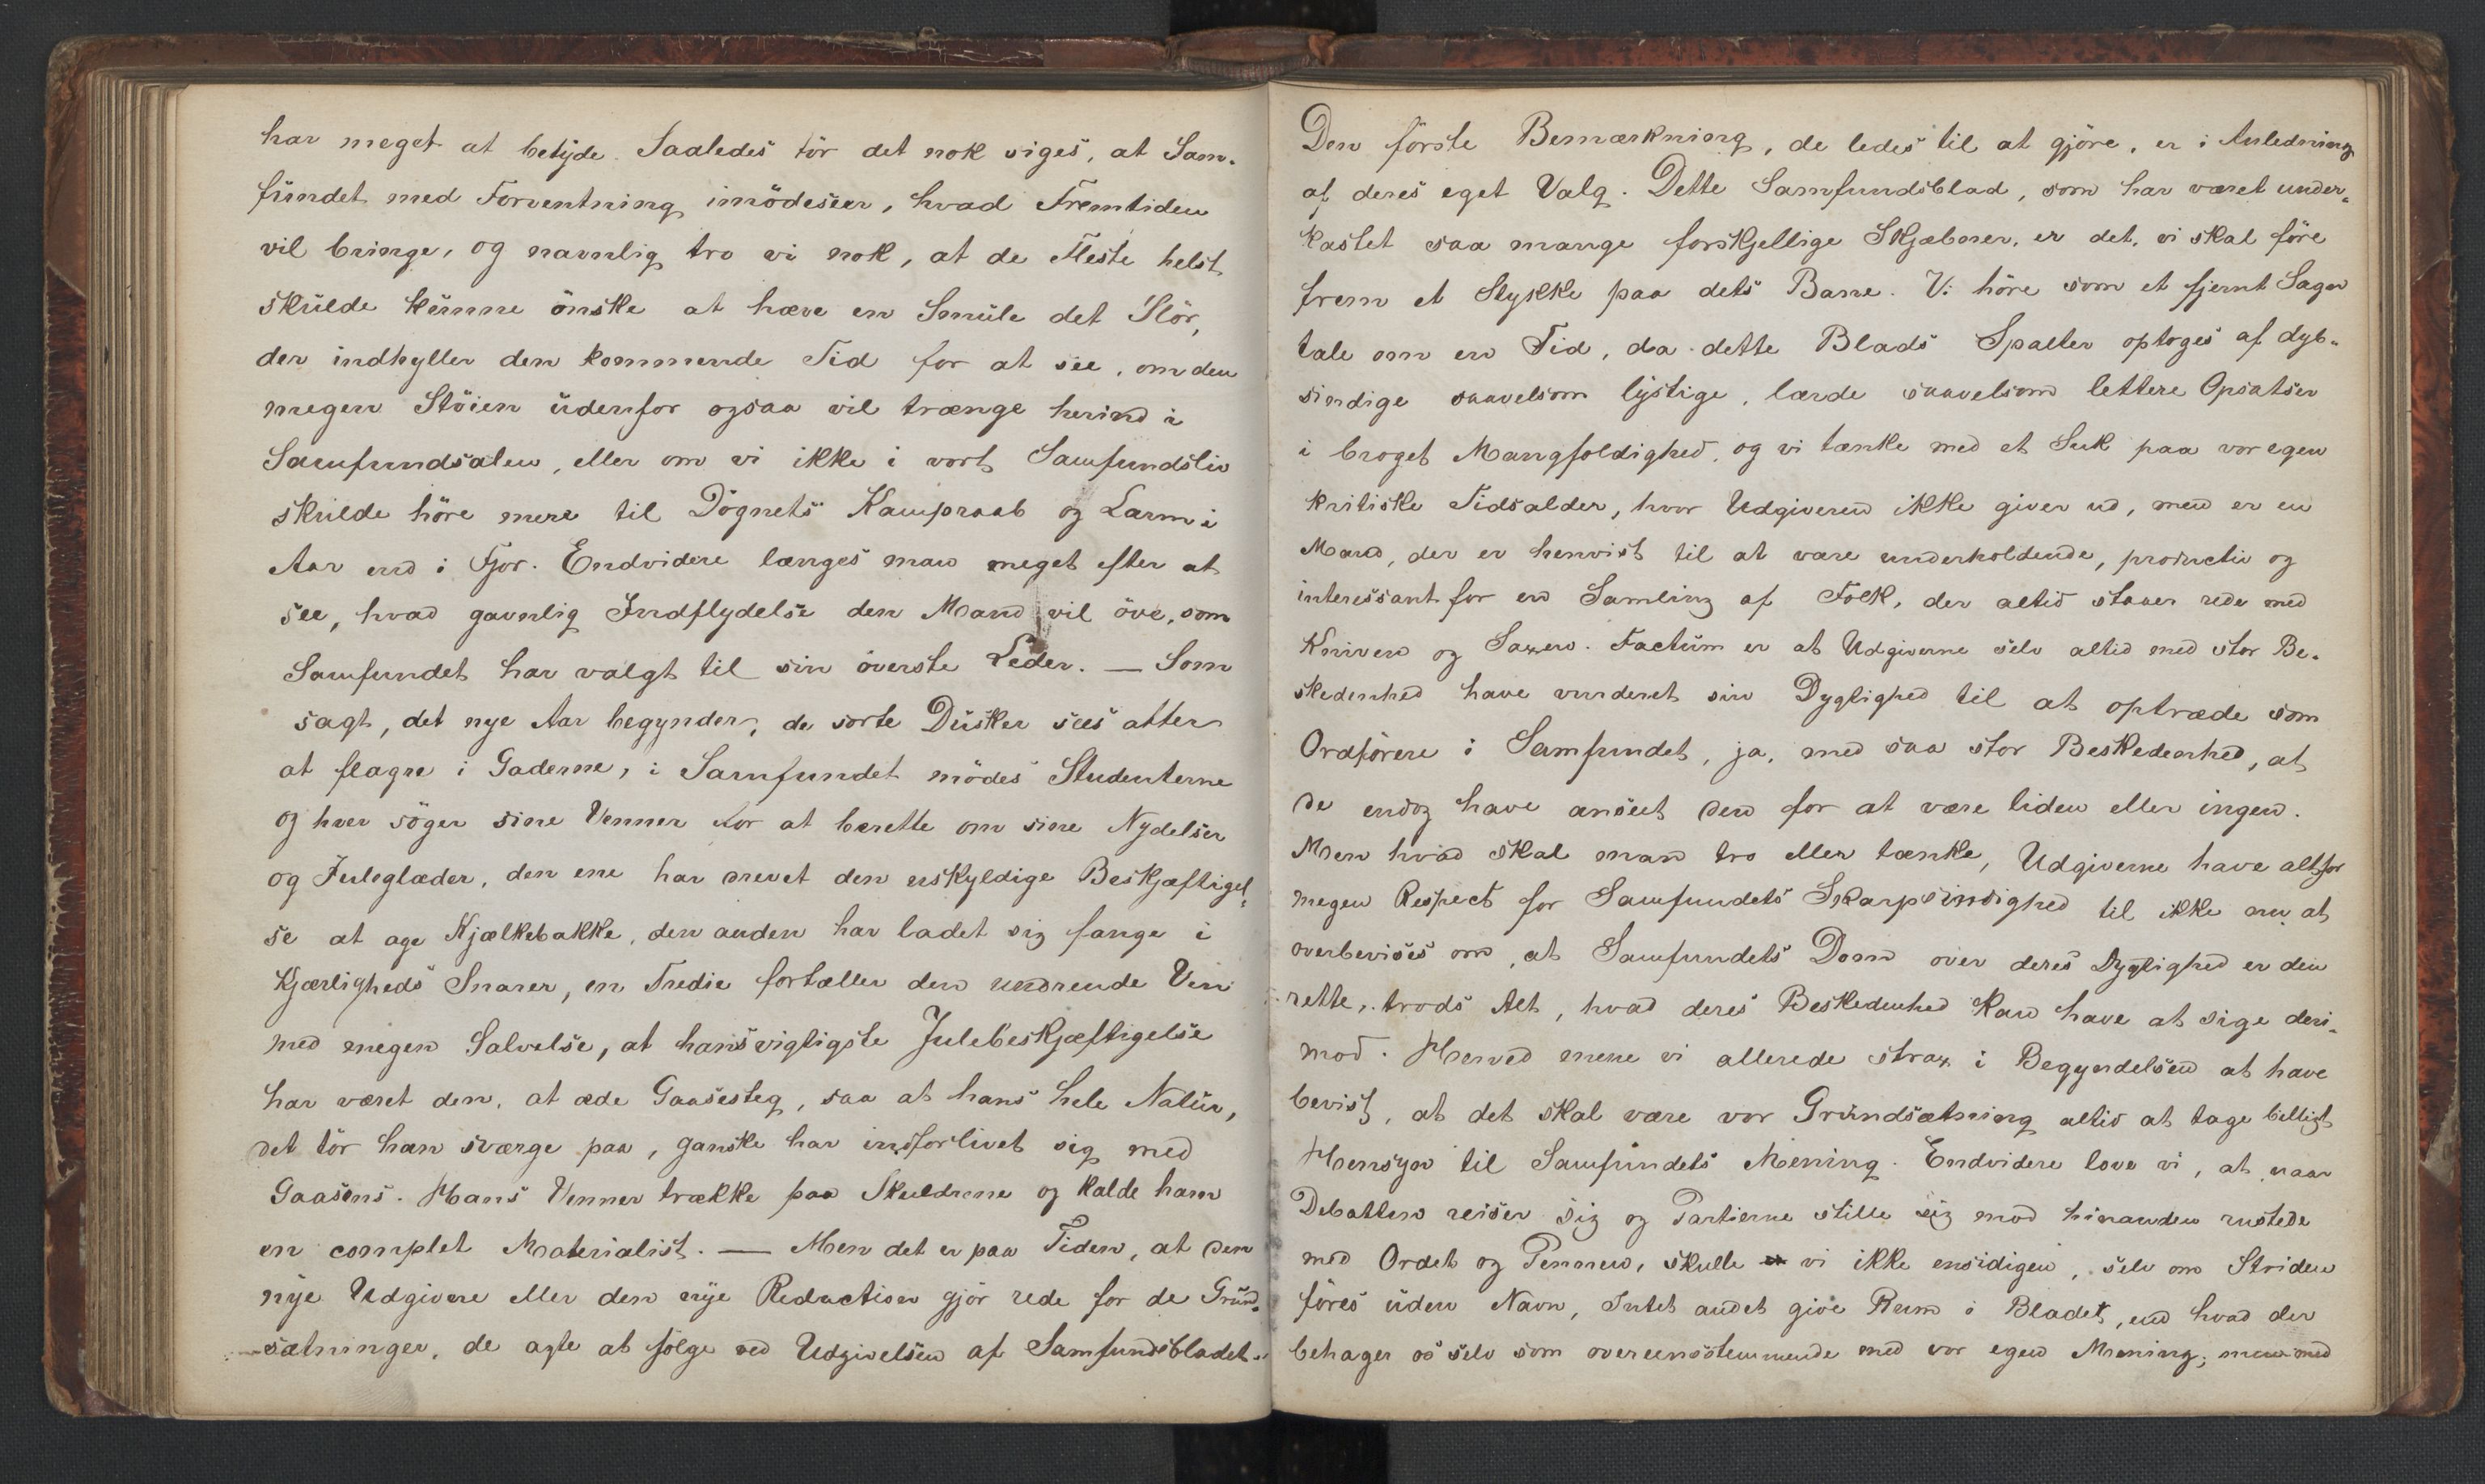 har meget at betyde. Saaledes tör det nok siges, at Sam-
fundet med Forventning imödeseer, hvad Fremtiden
vil bringe, og navnlig tro vi nok, at de Fleste helst
skulde kunne önske at hæve en Smule det Slör,
der indhyller den kommende Tid for at see, om den
megen Stöien udenfor ogsaa vil trænge herind i
Samfundsalen, eller om vi ikke i vort Samfundsliv
skulde höre mere til Dögnets Kampraab og Larm i
Aar end i Fjor. Endvidere længes man meget efter at
see, hvad gavnlig Indflydelse den Mand vil öve, som
Samfundet har valgt til sin överste Leder. — Som
sagt, det nye Aar begynder, de sorte Dusker sees atter
at flagre i Gaderne, i Samfundet mödes Studenterne
og hver söger sine Venner for at berette om sine Nydelser
og Juleglæder, den ene har drevet den uskyldige Beskjæftigel-
se at age Kjælkebakke, den anden har ladet sig fange i
Kjærligheds Snarer, en Tredie fortæller den undrende Ven
med megen Salvelse, at hans vigtigste Julebeskjæftigelse
har været den, at æde Gaasesteg, saa at hans hele Natur,
det tör han sværge paa, ganske har indforlivet sig med
Gaasens. Hans Venner trække paa Skuldrene og kalde ham
en complet Materialist. — Men det er paa Tiden, at den
nye Udgivere eller den nye Redaction gjör rede for de Grund-
sætninger, de agte at fölge ved Udgivelsen af Samfundsbladet.
Den förste Bemærkning, de ledes til at gjöre, er i Anledning
af deres eget Valg. Dette Samfundsblad, som har været under-
kastet saa mange forskjellige Skjæbner, er det, vi skal före
frem et Stykke paa dets Bane. Vi höre som et fjernt Sagn
tale om en Tid, da dette Blads Spalter optoges af dyb-
sindige saavelsom lystige, lærde saavelsom lettere Opsatser
i broget Mangfoldighed, og vi tænke med et Suk paa vor egen
kritiske Tidsalder, hvor Udgiveren ikke giver ud, men er en
Mand, der er henvist til at være underholdende, productiv og
interessant for en Samling af Folk, der altid staaer rede med
Kniven og Saxen. Factum er at Udgiverne selv altid med stor Be-
skedenhed have vurderet sin Dygtighed til at optræde som
Ordförere i Samfundet, ja, med saa stor Beskedenhed, at
de endog have anseet den for at være liden eller ingen.
Men hvad skal man tro eller tænke, Udgiverne have altfor
megen Respect for Samfundets Skarpsindighed til ikke nu at
overbevises om, at Samfundets Dom over deres Dygtighed er den
rette, trods Alt, hvad deres Beskedenhed kan have at sige deri-
mod. Herved mene vi allerede strax i Begyndelsen at have
bevist, at det skal være vor Grundsætning altid at tage billigt
Hensyn til Samfundets Mening. Endvidere love vi, at naar
Debatten reiser sig og Partierne stille sig mod hinanden rustede
med Ordet og Pennen, skulle vi ikke ensidigen, selv om Striden
föres uden Navn, Intet andet give Rum i Bladet, end hvad der
behager os selv som overeensstemmende med vor egen Mening; men med